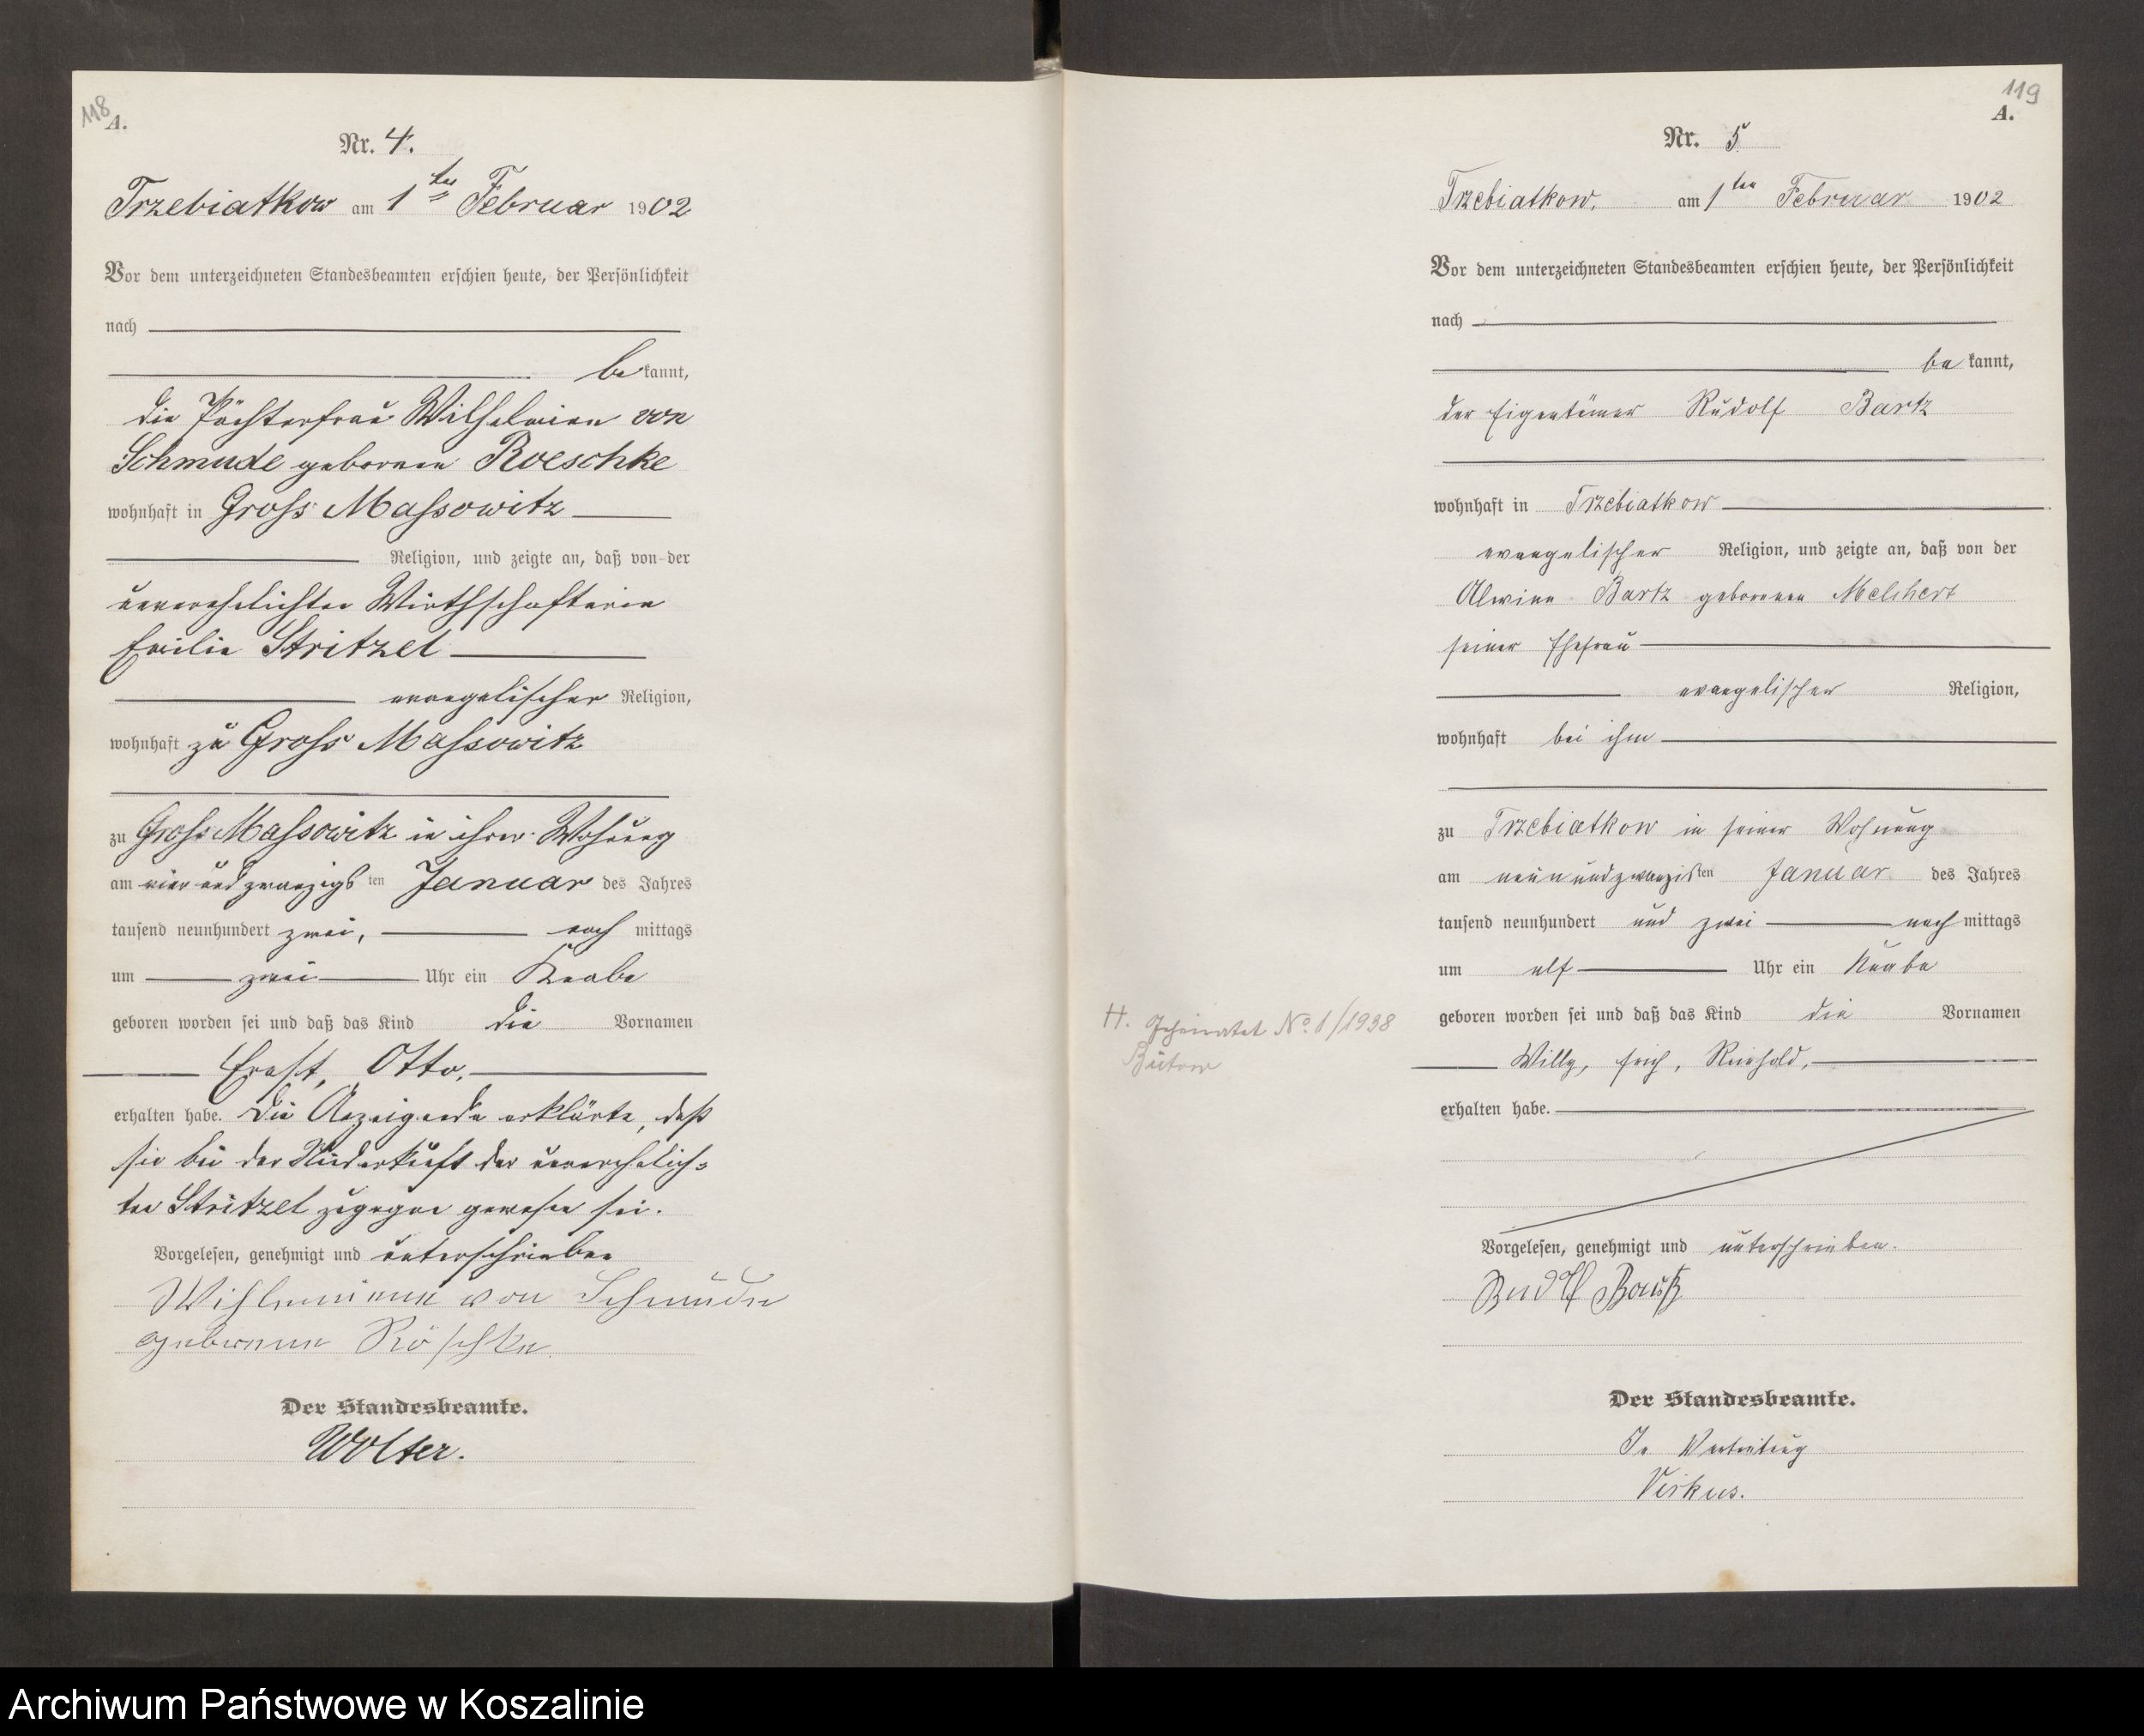 118
A.
Nr. 4.
Trzebiatkow am 1ten Februar 1902
Vor dem unterzeichneten Standesbeamten erschien heute, der Persönlichkeit
nach
be kannt,
die Pächterfrau Wilhelmine von
Schmude geborene Roeschke
wohnhaft in Gross Massowitz
Religion, und zeigte an, daß von der
unverehelichten Wirthschafterin
Emilie Stritzel
evangelischer Religion,
wohnhaft zu Gross Massowitz
zu Gross Massowitz in ihrer Wohnung
am vier und zwanzigsten Januar des Jahres
tausend neunhundert zwei, nach mittags
um zwei Uhr ein Knabe
geboren worden sei und daß das Kind die Vornamen
Ernst, Otto,
erhalten habe. Die Anzeigende erklärte, daß
sie bei der Niederkunft der unverehelich=
ten Stritzel zugegen gewesen sei.
Vorgelesen, genehmigt und unterschrieben
Wilhelmine von Schmude
geborene Röschke
Der Standesbeamte.
Wolter.
119
A.
Nr. 5
Trzebiatkow. am 1ten Februar 1902
Vor dem unterzeichneten Standesbeamten erschien heute, der Persönlichkeit
nach
be kannt,
der Eigentümer Rudolf Bartz
wohnhaft in Trzebiatkow
evangelischer Religion, und zeigte an, daß von der
Alwine Bartz geborenen Melchert
seiner Ehefrau
evangelischer Religion,
wohnhaft bei ihm
zu Trzebiatkow in seiner Wohnung
am neunundzwanzigsten Januar des Jahres
tausend neunhundert und zwei nach mittags
um elf Uhr ein Knabe
geboren worden sei und daß das Kind die Vornamen
Willy, Erich, Reinhold,
erhalten habe.
Vorgelesen, genehmigt und unterschrieben.
Rudolf Bartz
Der Standesbeamte.
In Vertretung
Virkus.
H. Geheiratet No. 1/1938
Bütow
Archiwum Państwowe w Koszalinie